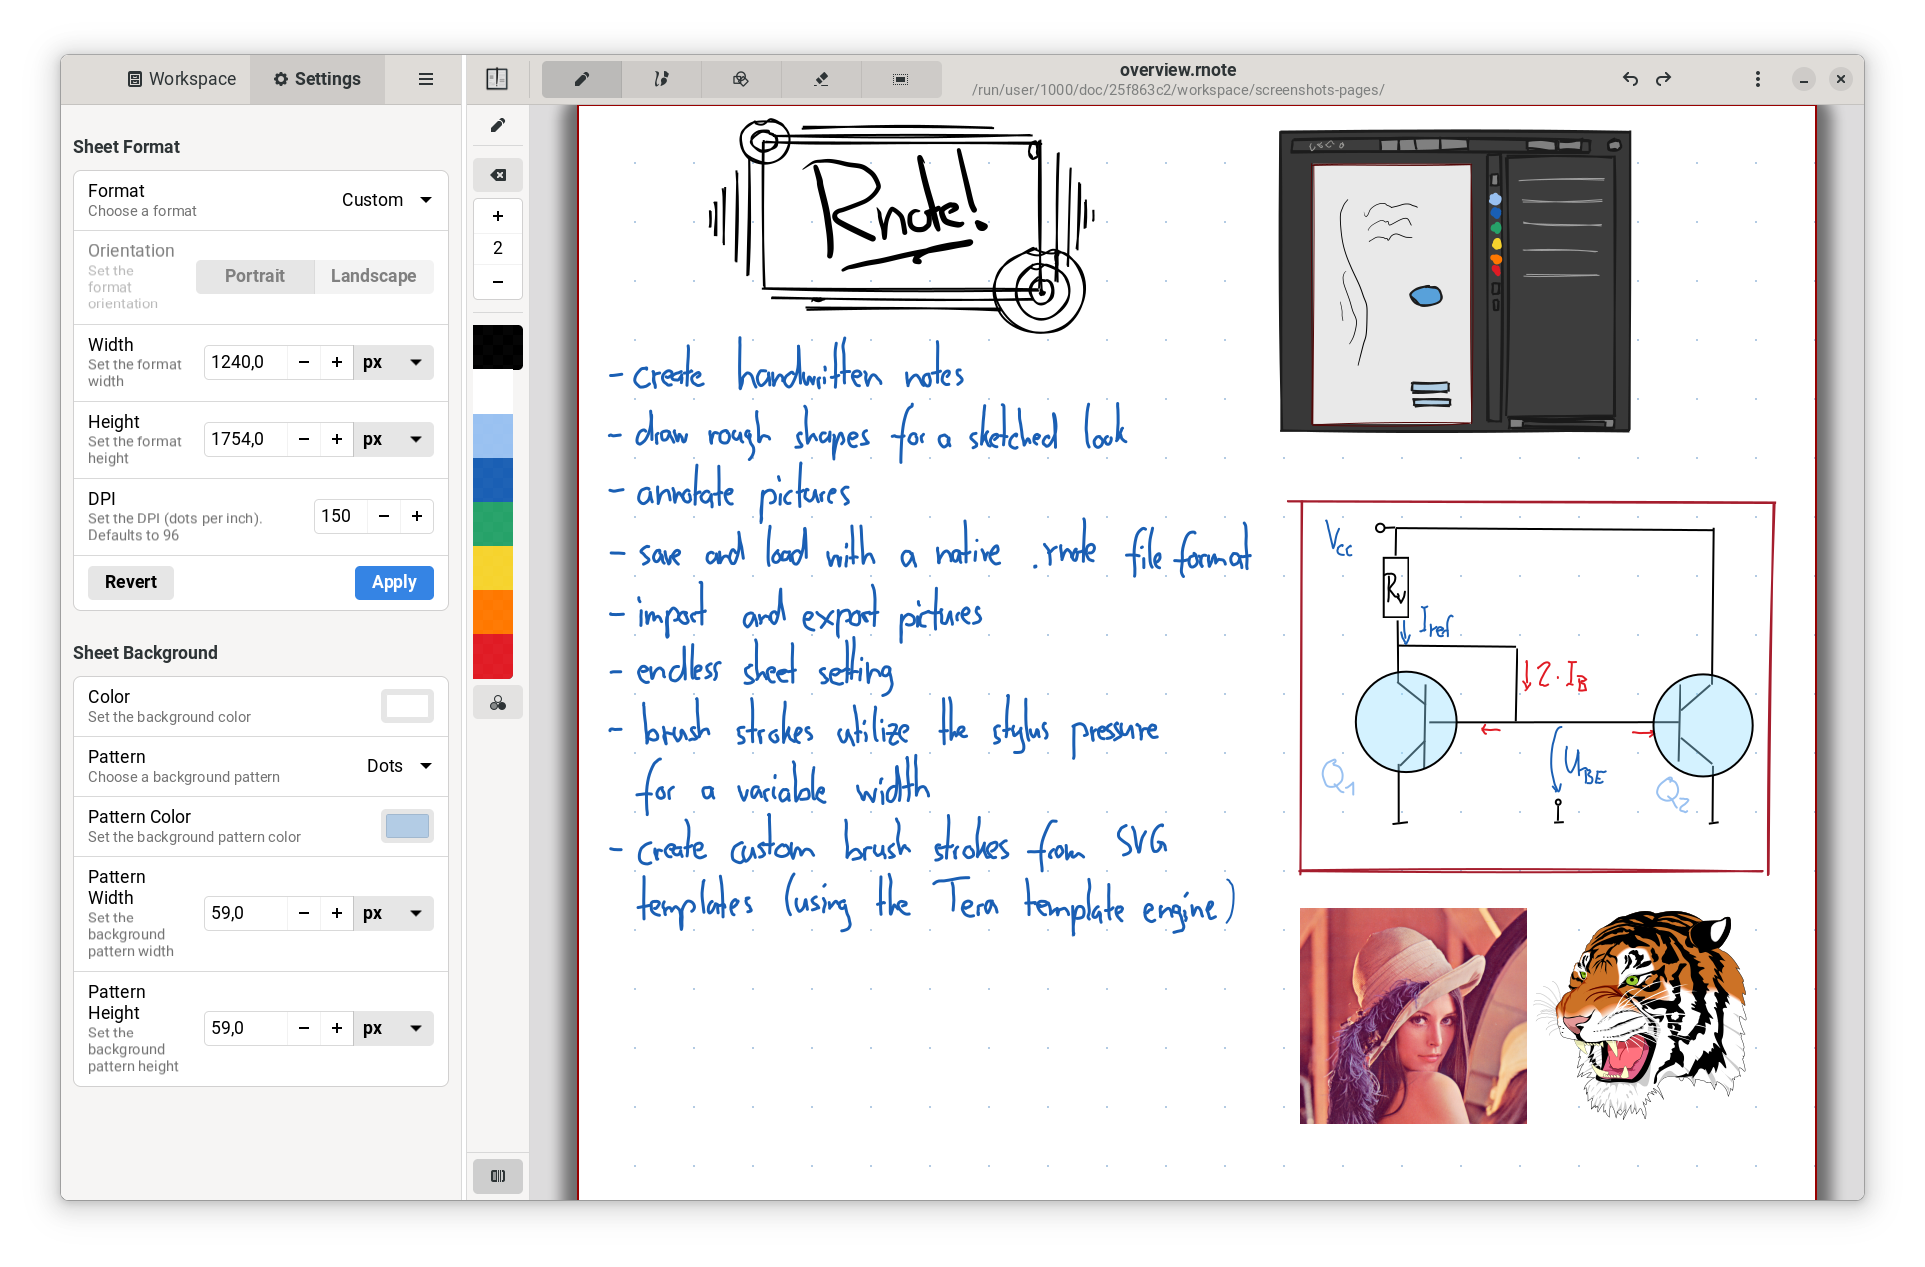 Workspace
Settings
overview.rnote
/run/user/1000/doc/25f863c2/workspace/screenshots-pages/
Sheet Format
Format
Choose a format
Custom
Orientation
Set the
format
orientation
Portrait
Landscape
Width
Set the format
width
1240,0
px
Height
Set the format
height
1754,0
px
DPI
Set the DPI (dots per inch).
Defaults to 96
150
Revert
Apply
Sheet Background
Color
Set the background color
Pattern
Choose a background pattern
Dots
Pattern Color
Set the background pattern color
Pattern
Width
Set the
background
pattern width
59,0
px
Pattern
Height
Set the
background
pattern height
59,0
px
2
Rnote!
- create handwritten notes
- draw rough shapes for a sketched look
- annotate pictures
- save and load with a native .rnote file format
- import and export pictures
- endless sheet setting
- brush strokes utilize the stylus pressure
for a variable width
- create custom brush strokes from SVG
templates (using the Tera template engine)
Vcc
Rv
Iref
2·IB
Q1
UBE
Q2